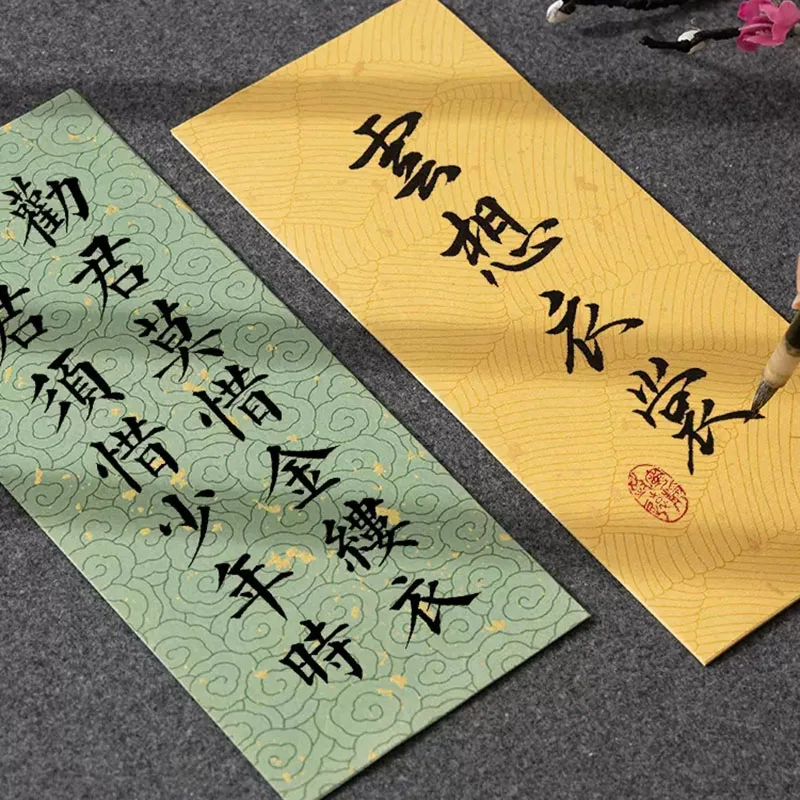 雲想衣裳
勸君莫惜金縷衣
君須惜少年時